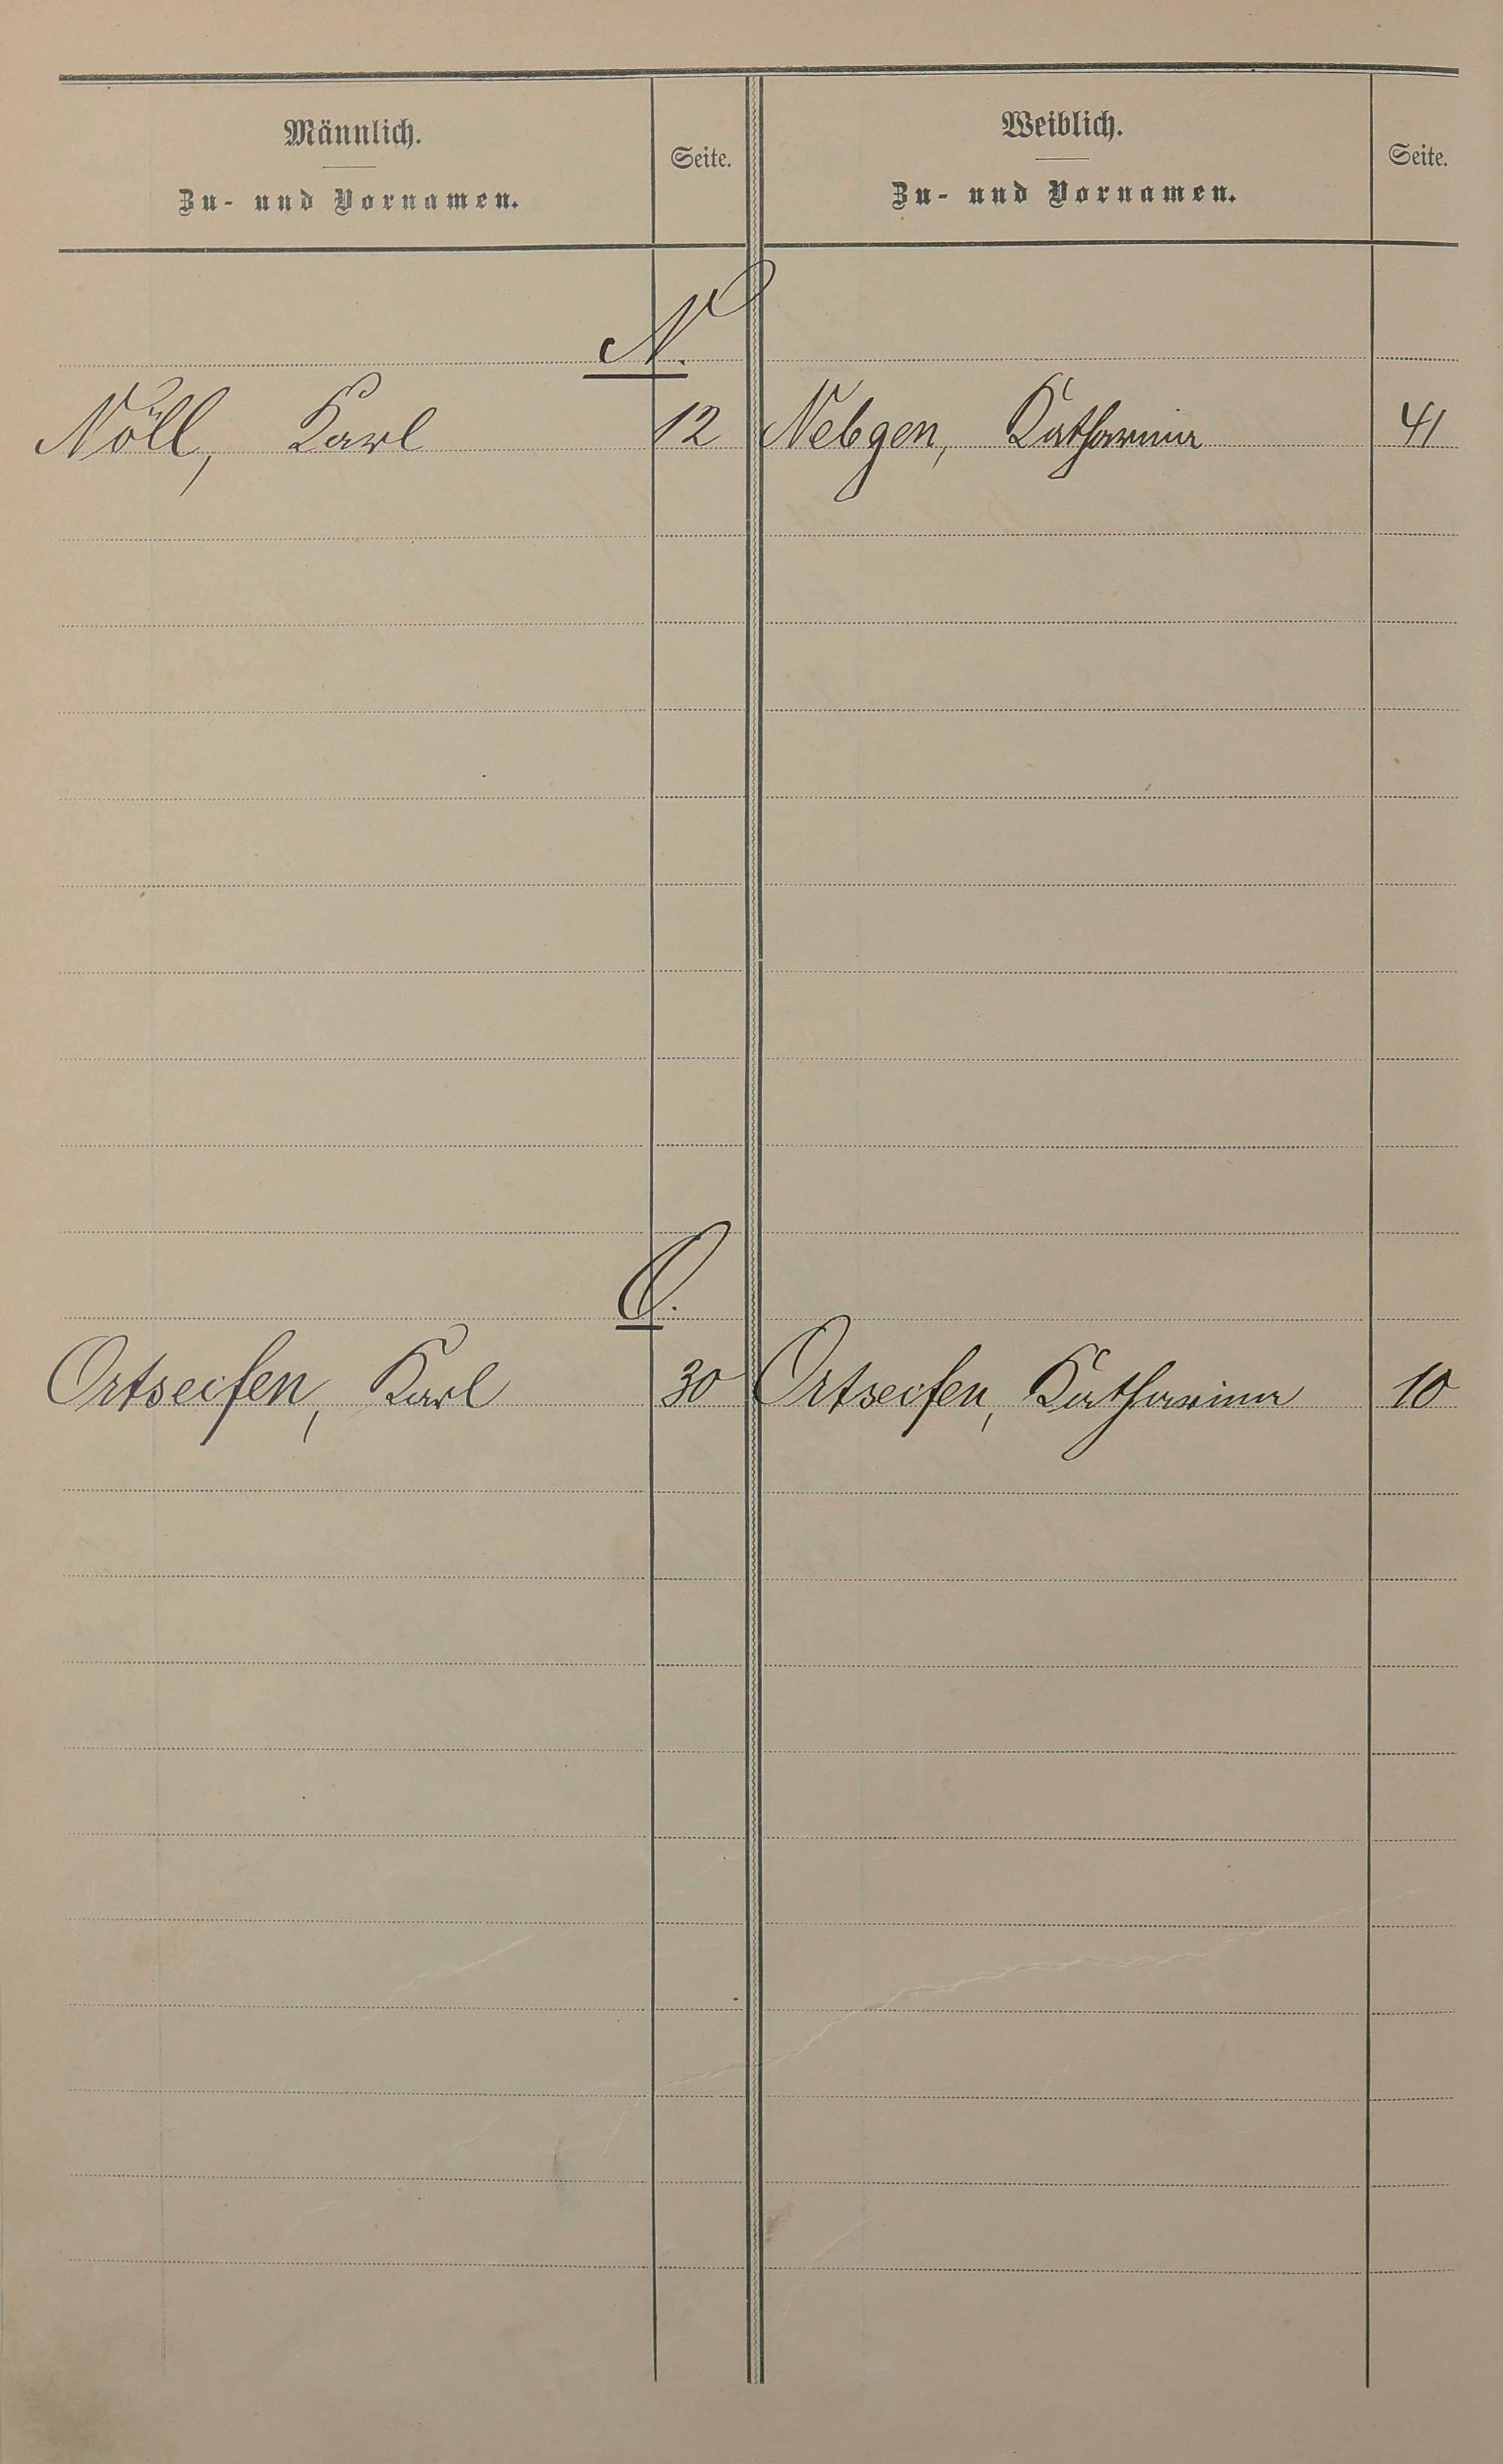 Männlich. Seite. Weiblich. Seite.
Zu- und Vornamen. Zu- und Vornamen.
N.
Nöll, Karl 12 Nebgen, Katharina 41
O.
Ortseifen, Karl 30 Ortseifen, Katharina 10